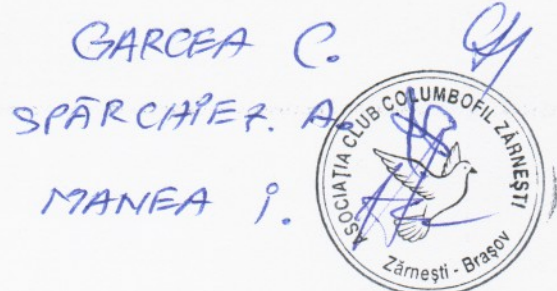 GARCEA C.
SPĂRCHIEZ. A.
MANEA I.
ASOCIAŢIA CLUB COLUMBOFIL ZĂRNEŞTI
Zărneşti - Braşov